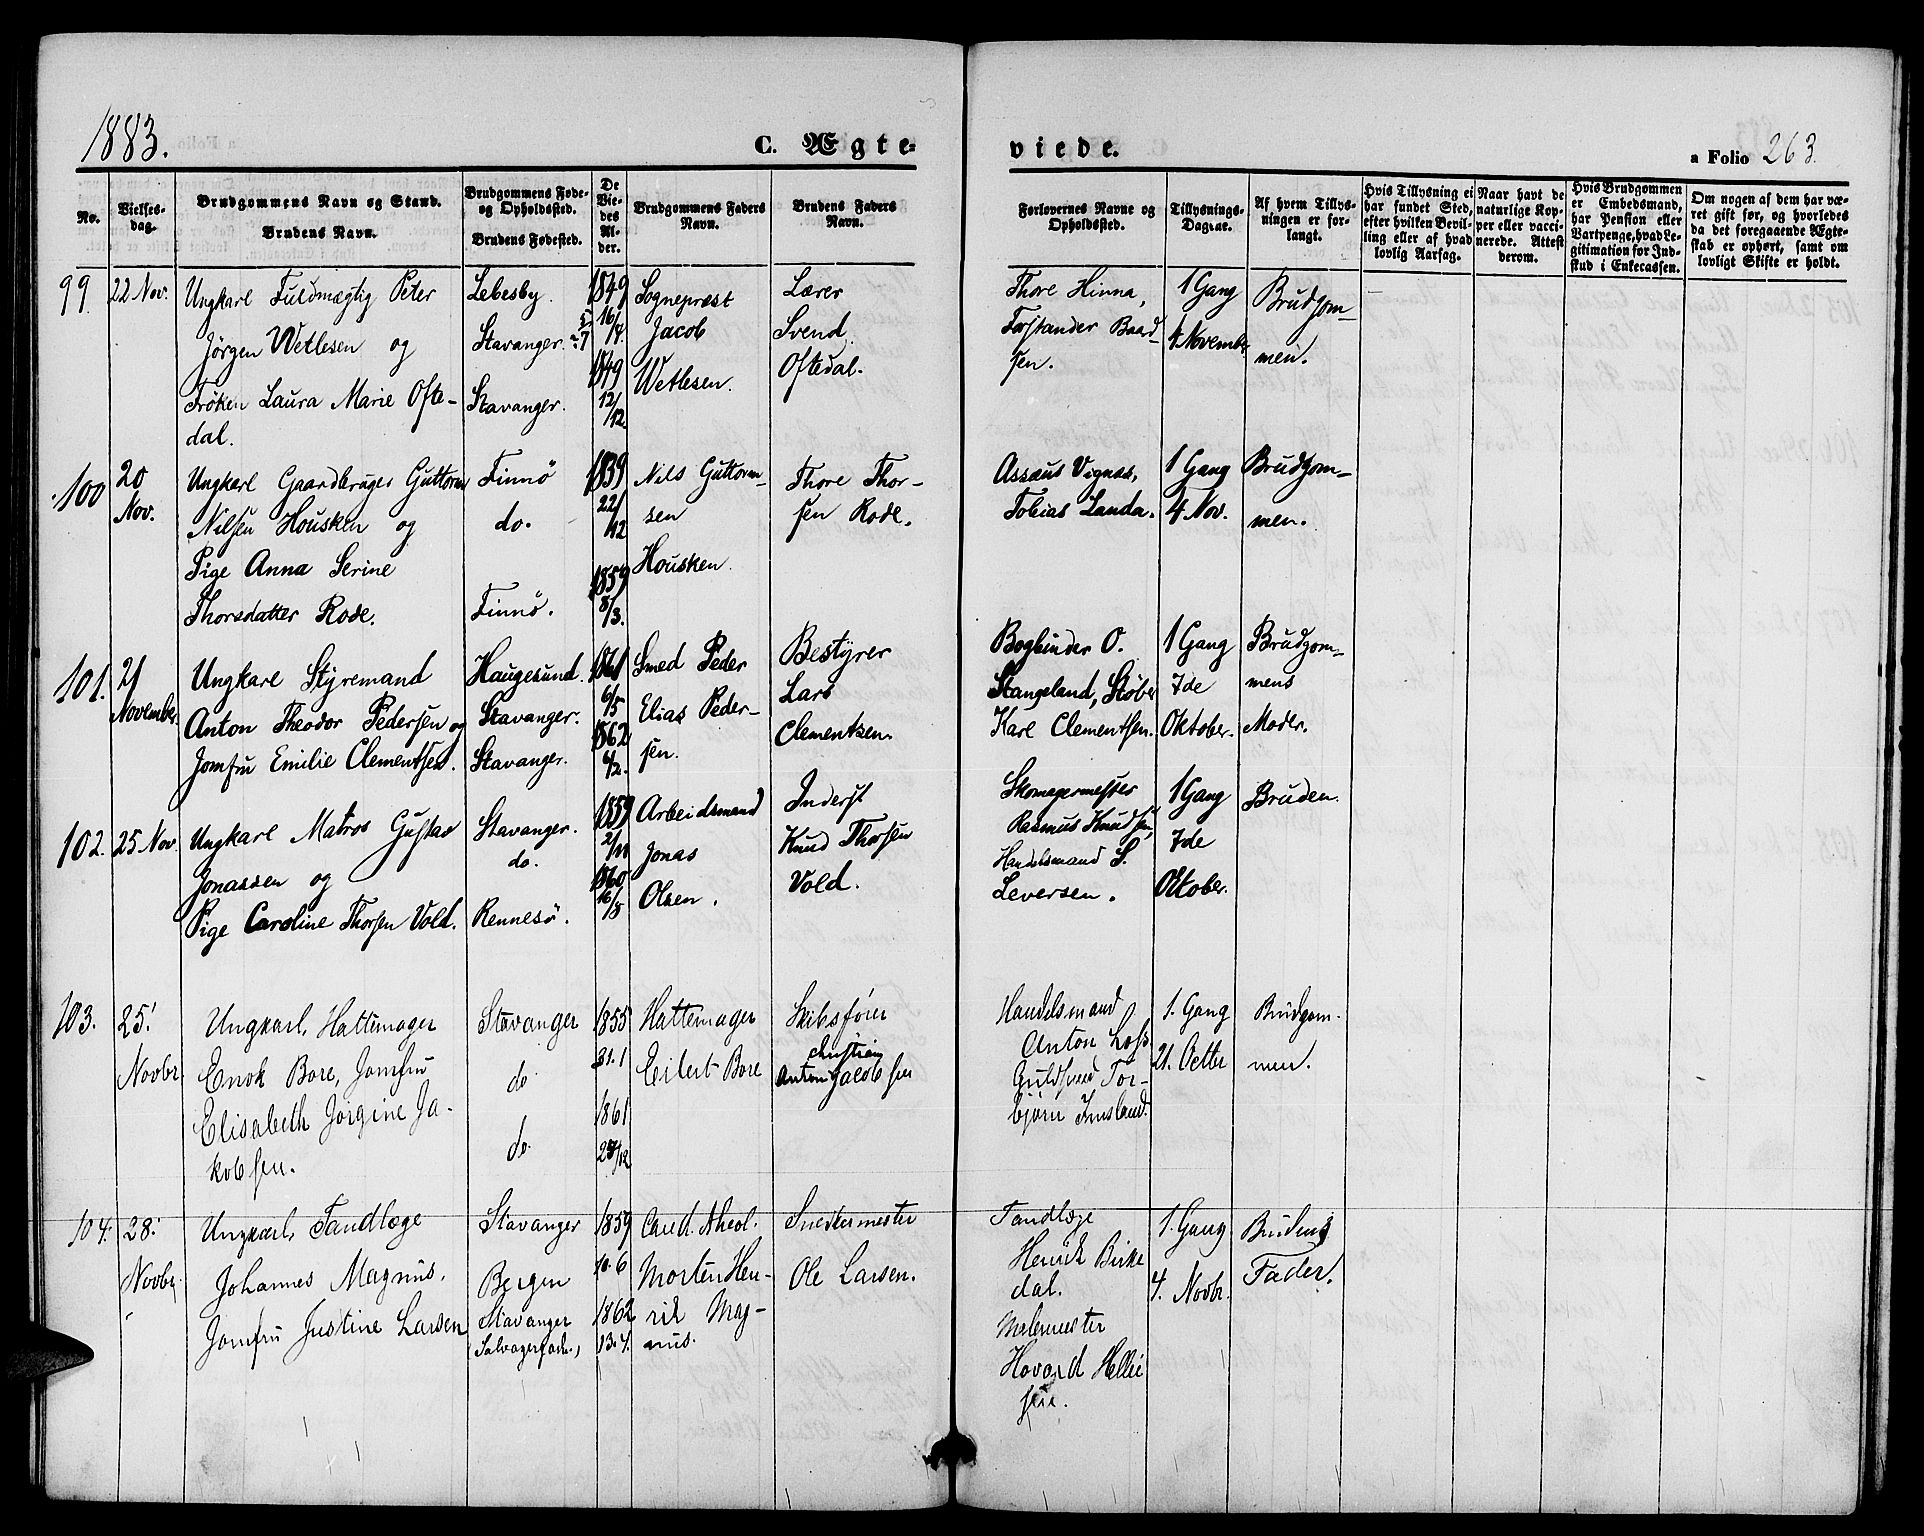 1883.
C. Ægte-
viede.
a Folio 263.
No.
Vielses-
dag.
Brudgommens Navn og Stand.
Brudens Navn.
Brudgommens Føde-
og Opholdssted.
Brudens Fødested.
De
Vie-
des
Al-
der.
Brudgommens Faders
Navn.
Brudens Faders
Navn.
Forlovernes Navne og
Opholdssted.
Tillysnings-
Dagene.
Af hvem Tillys-
ningen er for-
langt.
Hvis Tillysning ei
har fundet Sted,
efter hvilken Bevil-
ling eller af hvad
lovlig Aarsag.
Naar havt de
naturlige Kop-
per eller vacci-
nerede. Attest
derom.
Hvis Brudgommen
er Embedsmand,
har Pension eller
Vartpenge, hvad Le-
gitimation for Ind-
skud i Enkecassen.
Om nogen af dem har væ-
ret gift før, og hvorledes
da det foregaaende Ægte-
skab er ophørt, samt om
lovligt Skifte er holdt.
99.
22 Nov.
Ungkarl Fuldmægtig Peter
Jörgen Wetlesen og
Fröken Laura Marie Ofte-
dal.
Lebesby.
Stavanger.
Stavanger.
1849
16/4.
1849
12/12.
Sogneprest
Jacob
Wetlesen.
Lærer
Svend
Oftedal.
Thore Hinna,
Forstander Baard-
sen.
1 Gang
4 November
Brudgom-
men.
100
20
Nov.
Ungkarl Gaardbruger Guttorm
Nilsen Housken og
Pige Anna Serine
Thorsdatter Rode.
Finnö
do.
Finnö.
1839
22/12
1859
8/3.
Nils Guttorm-
sen
Housken.
Thore Thor-
sen Rode.
Assaus Vignæs,
Tobias Landa.
1 Gang
4 Nov.
Brudgom-
men.
101.
21
November.
Ungkarl Styremand
Anton Theodor Pedersen og
Jomfru Emilie Clementsen.
Haugesund.
Stavanger.
Stavanger.
1861
6/5
1862
6/2.
Smed Peder
Elias Peder-
sen.
Bestyrer
Lars
Clementsen.
Bogbinder O.
Stangeland, Støber
Karl Clementsen.
1 Gang
7de
Oktober.
Brudgom-
mens
Moder.
102.
25 Nov.
Ungkarl Matros Gustav
Jonassen og
Pige Caroline Thorsen Vold.
Stavanger.
do.
Rennesö.
1859
2/11
1860
16/8
Arbeidsmand
Jonas
Olsen.
Inderst
Knud Thorsen
Vold.
Skomagermester
Rasmus Knudsen,
Handelsmand S.
Leversen.
1 Gang
7de
Oktober.
Bruden.
103.
25.
Novbr
Ungkarl, Hattemager
Enok Bore, Jomfru
Elisabeth Jörgine Ja-
kobsen.
Stavanger
do
do
1855
31.1
1861
28/12
Hattemager
Eilert Bore
Skibsfører
christian
Anton Jacobsen
Handelsmand
Anton Loss
Guldsmed Tor-
björn Imsland.
1. Gang
21. Octbr
Brudgom-
men.
104.
28.
Novbr.
Ungkarl, Tandlæge
Johannes Magnus.
Jomfru Justine Larsen
Stavanger
Bergen
Stavanger
1859
10.6
1862
13.4.
Cand. theol.
Morten Hen-
rik Mag-
nus.
Snedkermester
Ole Larsen.
Tandlæge
Henrik Birke
dal.
Malermester
Hovard Hellie
sen.
1. Gang
4. Novbr.
Brudens
Fader.